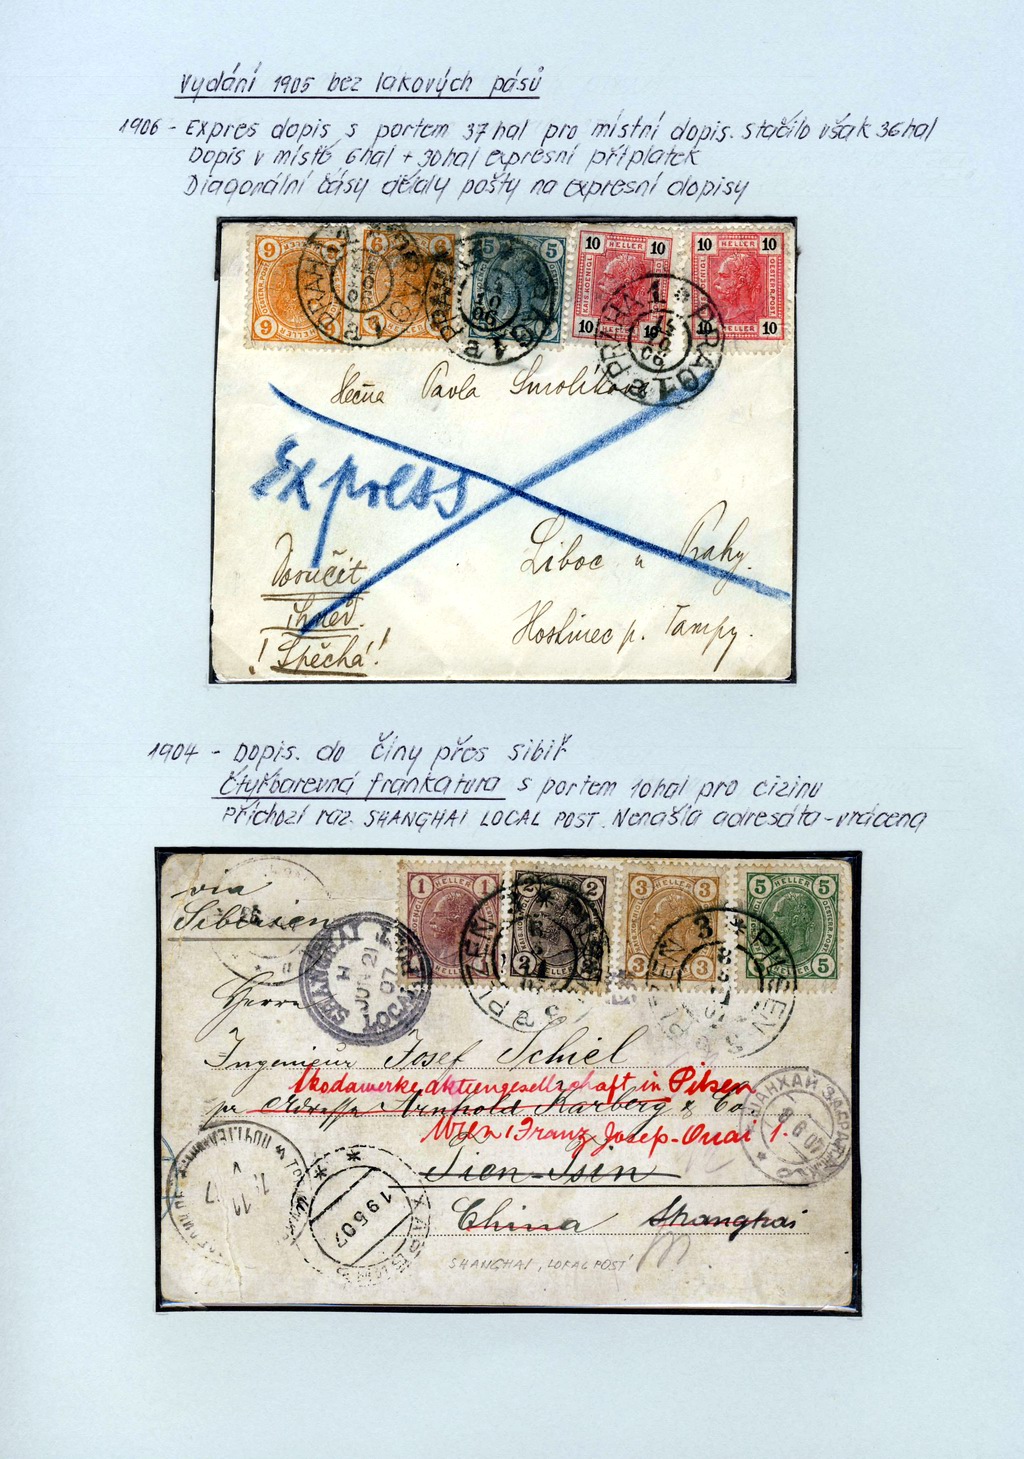 Vydání 1905 bez lakových pásů
1906 - Expres dopis s portem 37 hal pro místní dopis. stačilo však 36 hal
Dopis v místě 6 hal + 30 hal expresní příplatek
Diagonální čásy dělaly pošty na expresní dopisy
9 9 6 6 5 5 10 HELLER 10 10 HELLER 10
9 9 10 10 10 10
PRAHA 1 PRAG 1
15 10 06
Slečna Pavla Smolíkova
Express
Liboc u Prahy.
Doručit
ihned.
Hostinec p. Tampy.
! Spěchá!
1904 - Dopis. do Číny přes sibiř
Čtyřbarevná frankatura s portem 10 hal pro cizinu
Příchozí raz. SHANGHAI LOCAL POST. Nenašla adresáta - vrácena
1 HELLER 1 2 HELLER 2 3 HELLER 3 5 HELLER 5
via
Siberien
PILSEN PLZEŇ 3
SHANGHAI LOCAL POST
H
JUN 21
07
Herrn
Ingenieur Josef Schiel
Skodawerke aktiengesellschaft in Pilsen
pr Adresse Arnhold Karberg & Co
Wien 1 Franz Josef-Quai 1.
ШАНХАЙ
Tien-Tsin
19 5 07
China Shanghai
SHANGHAI, LOCAL POST